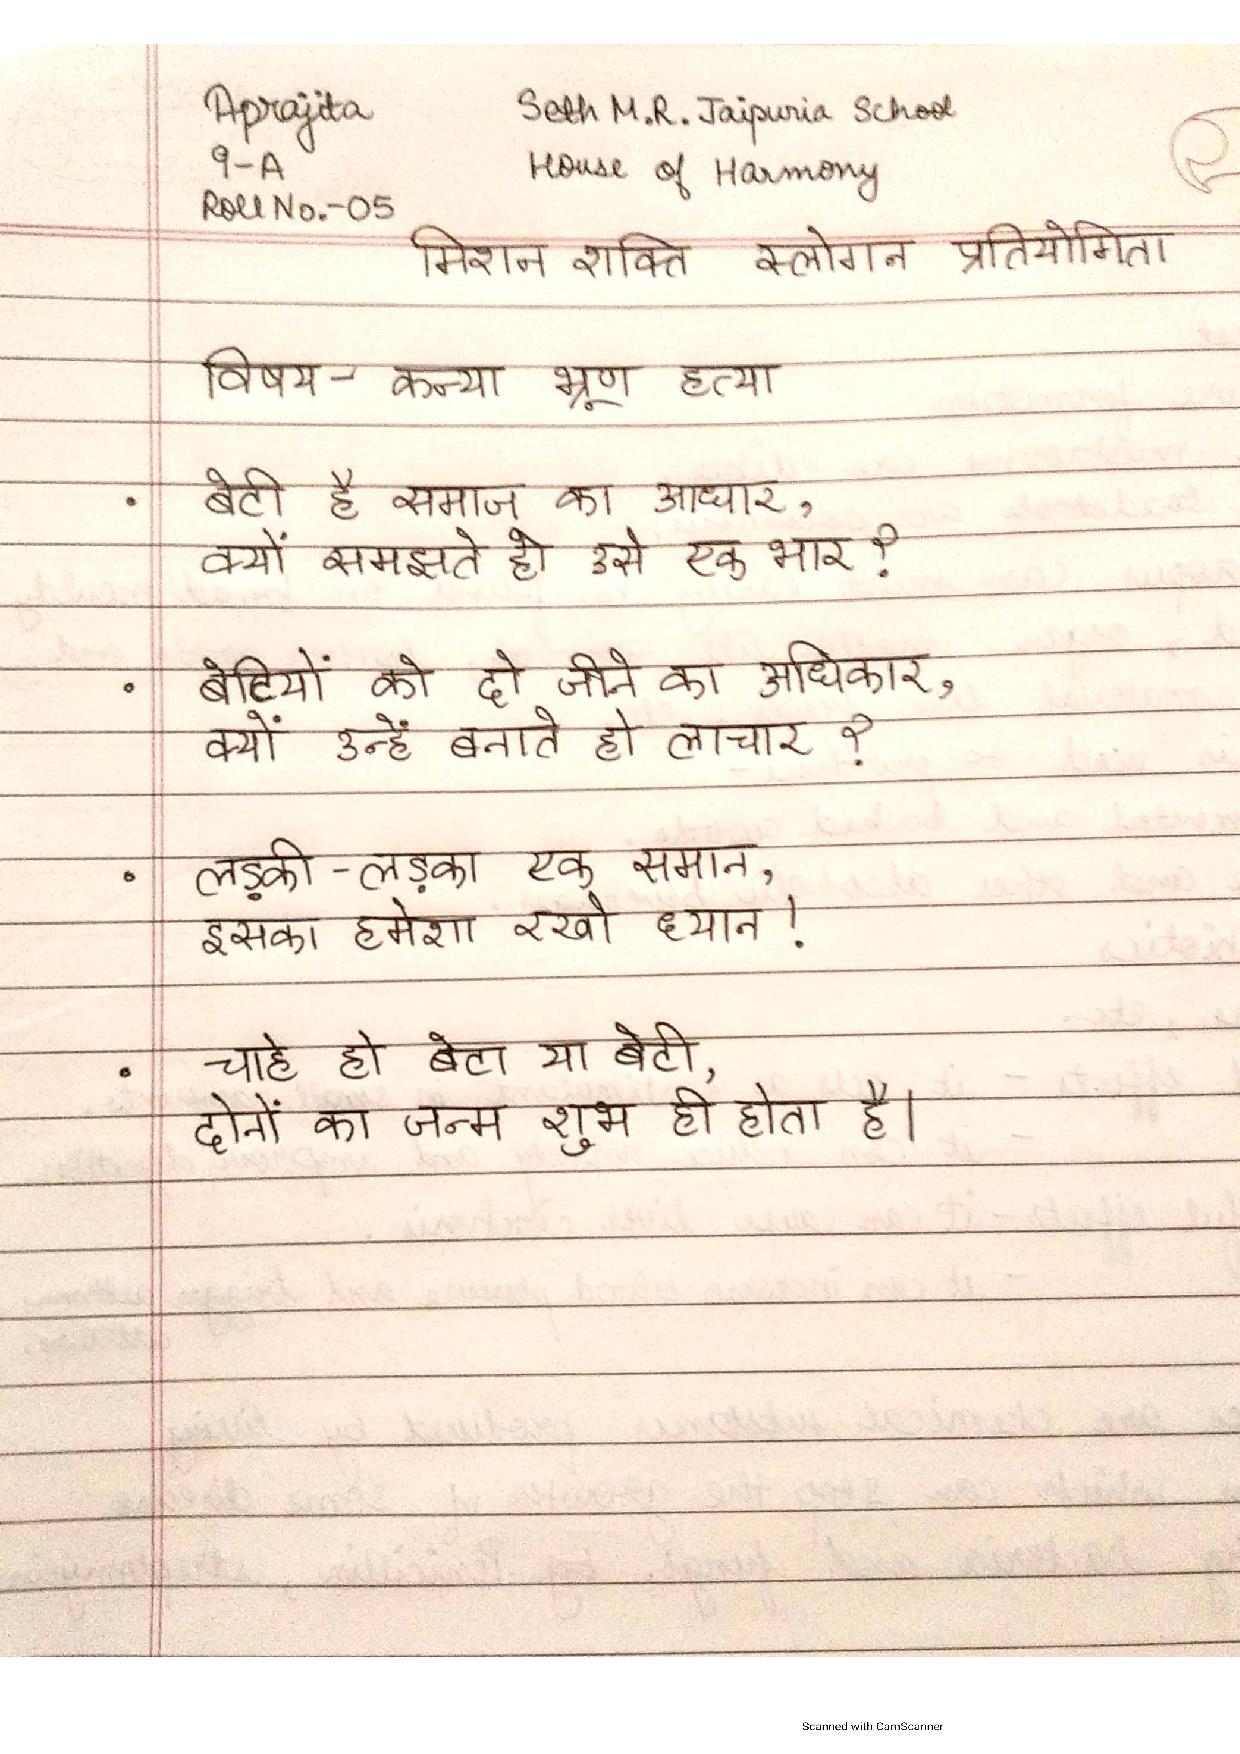 Aprajita Seth M.R. Jaipuria School
9-A House of Harmony
Roll No.-05
मिशन शक्ति स्लोगन प्रतियोगिता
विषय - कन्या भ्रूण हत्या
• बेटी है समाज का आधार,
क्यों समझते हो उसे एक भार?
• बेटियों को दो जीने का अधिकार,
क्यों उन्हें बनाते हो लाचार?
• लड़की - लड़का एक समान,
इसका हमेशा रखो ध्यान!
• चाहे हो बेटा या बेटी,
दोनों का जन्म शुभ ही होता है।
Scanned with CamScanner